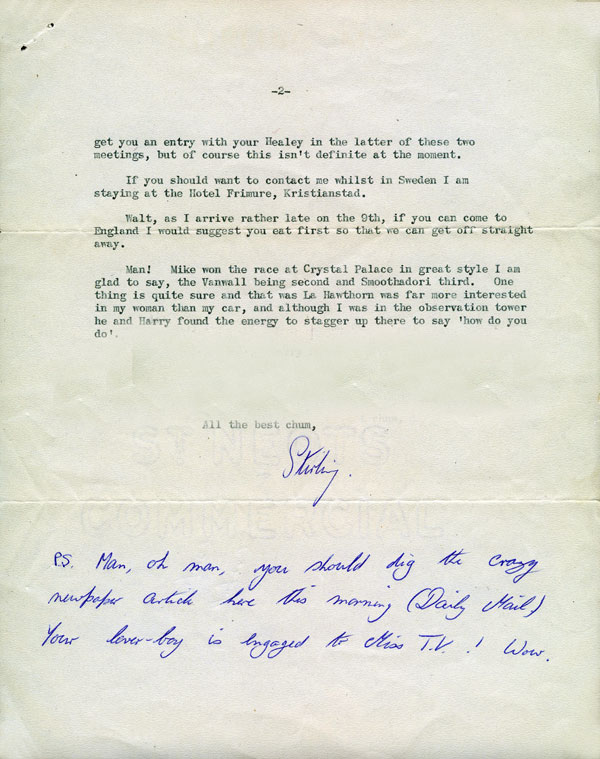 -2-
get you an entry with your Healey in the latter of these two
meetings, but of course this isn't definite at the moment.
If you should want to contact me whilst in Sweden I am
staying at the Hotel Frimure, Kristianstad.
Walt, as I arrive rather late on the 9th, if you can come to
England I would suggest you eat first so that we can get off straight
away.
Man! Mike won the race at Crystal Palace in great style I am
glad to say, the Vanwall being second and Smoothadori third. One
thing is quite sure and that was La Hawthorn was far more interested
in my woman than my car, and although I was in the observation tower
he and Harry found the energy to stagger up there to say 'how do you
do'.
All the best chum,
Stirling.
P.S. Man, oh man, you should dig the crazy
newspaper article here this morning (Daily Mail)
Your lover-boy is engaged to Miss T.V. ! Wow.
COMMERCIAL